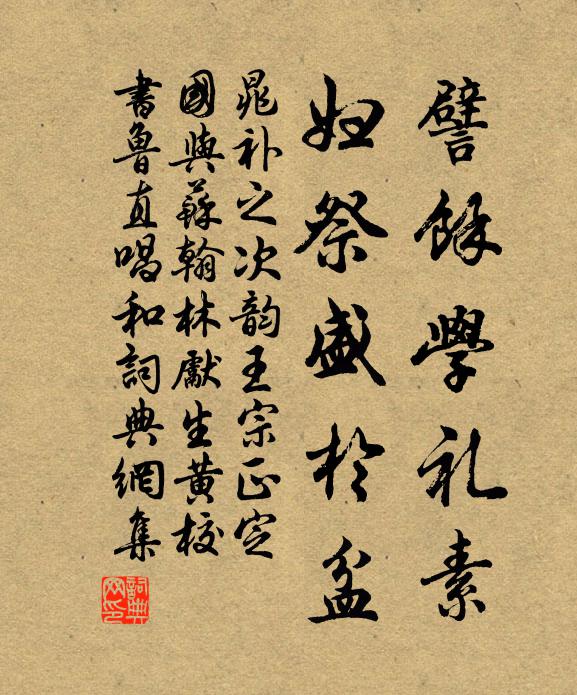 譬餘學礼素
妇祭盛於盆
晁补之次韵王宗正定
國與蘇翰林獻生黄校
書魯直唱和詞典網集
詞典网印